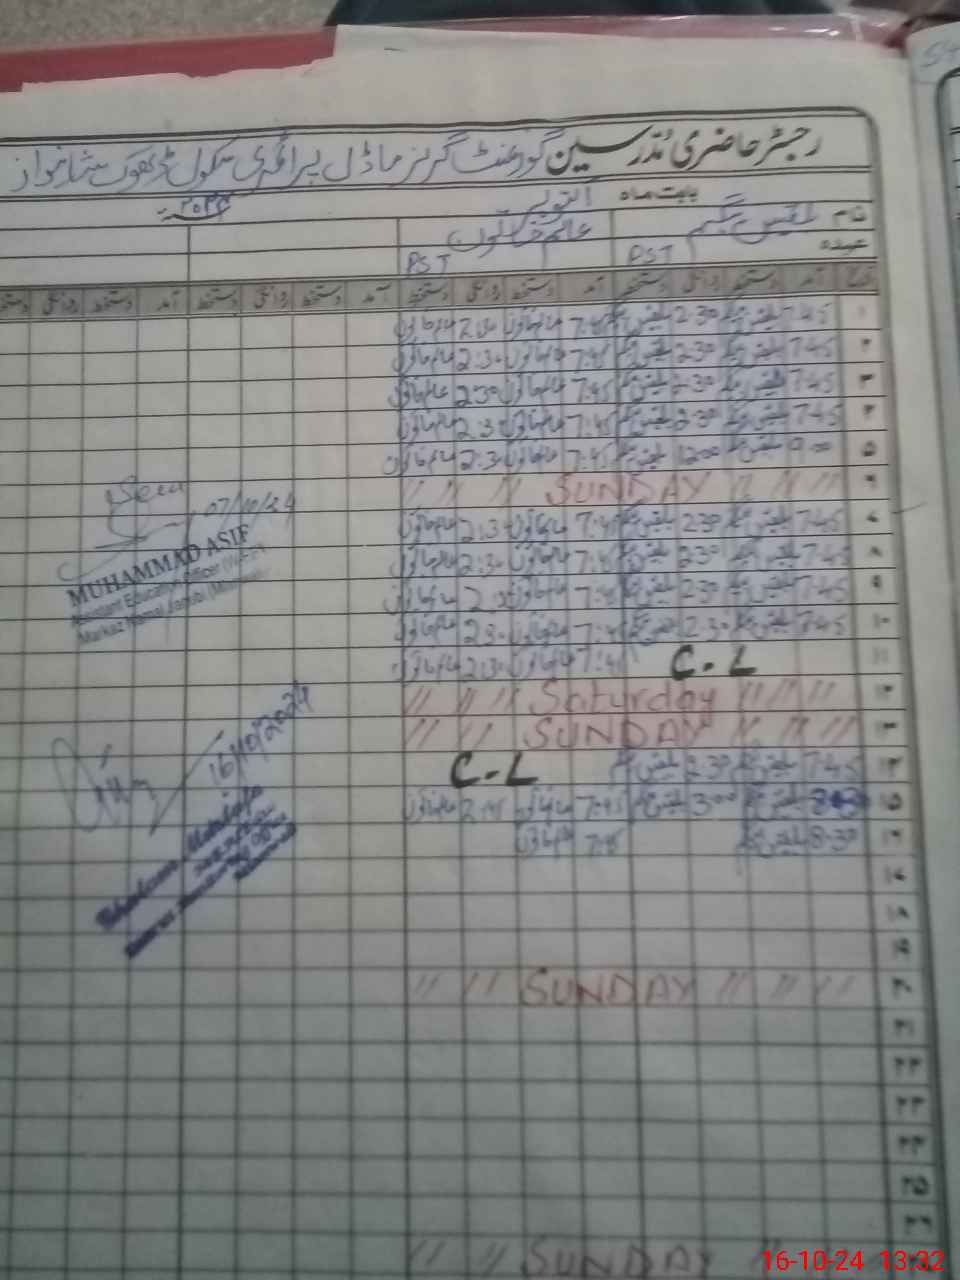 رجسٹر حاضری مدرسین گورنمنٹ گرلز ماڈل پرائمری سکول ڈھوک شاہنواز
بابت ماہ اکتوبر ۲۰۲۴
نام بلقیس بیگم عالم خاتون
عہدہ PST PST
تاریخ آمد دستخط روانگی دستخط آمد دستخط روانگی دستخط آمد دستخط روانگی دستخط آمد دستخط روانگی دستخط
۱ 7:45 بلقیس بیگم 2:30 بلقیس بیگم 7:45 عالم خاتون 2:30 عالم خاتون
۲ 7:45 بلقیس بیگم 2:30 بلقیس بیگم 7:45 عالم خاتون 2:30 عالم خاتون
۳ 7:45 بلقیس بیگم 2:30 بلقیس بیگم 7:45 عالم خاتون 2:30 عالم خاتون
۴ 7:45 بلقیس بیگم 2:30 بلقیس بیگم 7:45 عالم خاتون 2:30 عالم خاتون
۵ 9:00 بلقیس بیگم 12:00 بلقیس بیگم 7:45 عالم خاتون 2:30 عالم خاتون
۶ // // // SUNDAY // // //
۷ 7:45 بلقیس بیگم 2:30 بلقیس بیگم 7:45 عالم خاتون 2:30 عالم خاتون
۸ 7:45 بلقیس بیگم 2:30 بلقیس بیگم 7:45 عالم خاتون 2:30 عالم خاتون
۹ 7:45 بلقیس بیگم 2:30 بلقیس بیگم 7:45 عالم خاتون 2:30 عالم خاتون
۱۰ 7:45 بلقیس بیگم 2:30 بلقیس بیگم 7:45 عالم خاتون 2:30 عالم خاتون
۱۱ C-L 7:45 عالم خاتون 2:30 عالم خاتون
۱۲ // // // Saturday // // //
۱۳ // // SUNDAY // // //
۱۴ 7:45 بلقیس بیگم 2:30 بلقیس بیگم C-L
۱۵ بلقیس بیگم 3:00 بلقیس بیگم 7:45 عالم خاتون 2:45 عالم خاتون
۱۶ 8:30 بلقیس بیگم 7:45 عالم خاتون
۱۷
۱۸
۱۹
۲۰ // // SUNDAY // // //
۲۱
۲۲
۲۳
۲۴
۲۵
۲۶
// // SUNDAY //
07/10/24
MUHAMMAD ASIF
Assistant Education Officer
Markaz
16/10/2024
54
16-10-24 13:32